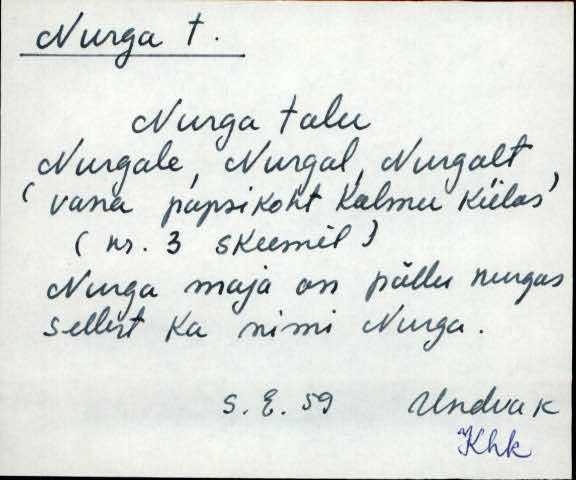 Nurga t.
Nurga talu
Nurgale, Nurgal, Nurgalt
'vana papsikoht Kalmu külas'
(nr. 3 skeemil)
Nurga maja on põllu nurgas
sellest ka nimi Nurga.
S. E. 59 Undva k
Khk